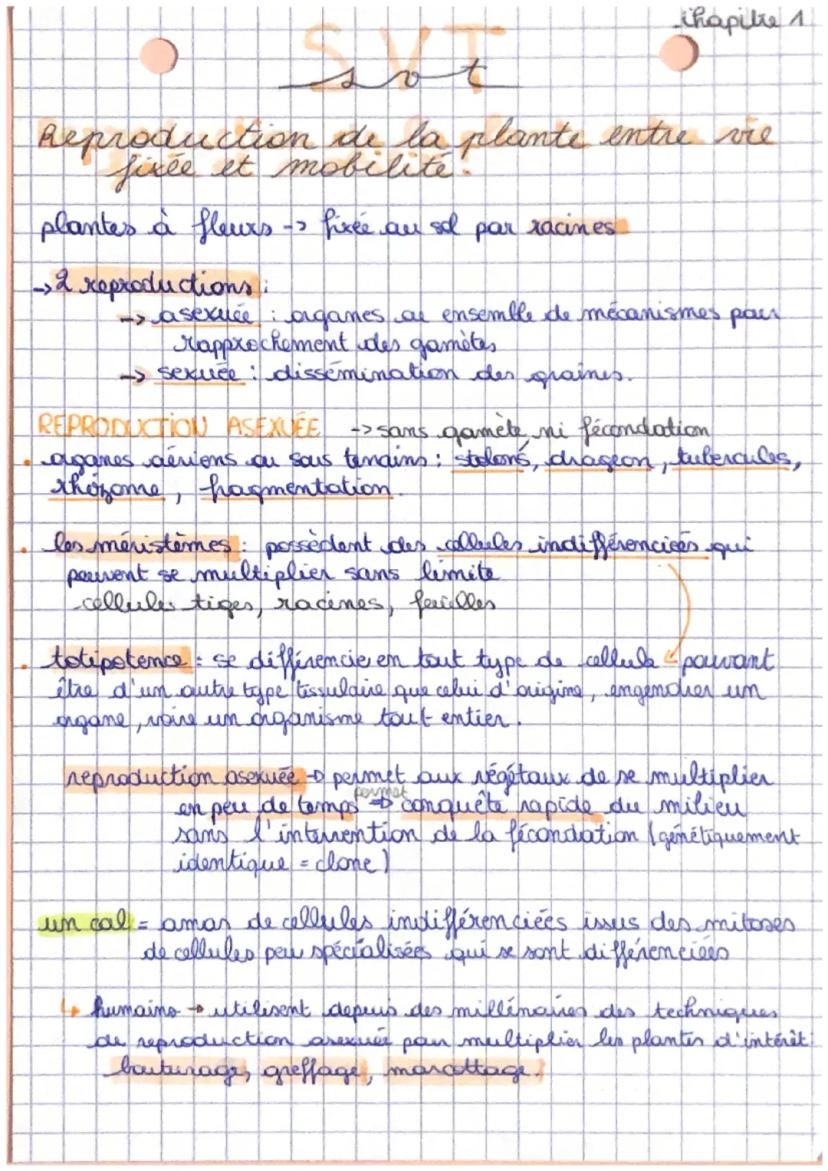 Chapitre 1
SVT
svt
Reproduction de la plante entre vie
fixée et mobilité.
plantes à fleurs -> fixée au sol par racines
-> 2 reproductions :
-> asexuée : organes ou ensemble de mécanismes pour
rapprochement des gamètes
-> sexuée : dissémination des graines.
REPRODUCTION ASEXUÉE -> sans gamète ni fécondation
• organes aériens ou sous terrains : stolons, drageon, tubercules,
rhizome, fragmentation.
• les méristèmes : possèdent des cellules indifférenciées qui
peuvent se multiplier sans limite
cellules tiges, racines, feuilles
• totipotence : se différencie en tout type de cellule pouvant
être d'un autre type tissulaire que celui d'origine, engendrer un
organe, voire un organisme tout entier.
reproduction asexuée -> permet aux végétaux de se multiplier
en peu de temps permet -> conquête rapide du milieu
sans l'intervention de la fécondation (génétiquement
identique = clone)
un cal = amas de cellules indifférenciées issus des mitoses
de cellules peu spécialisées qui se sont différenciées
↳ humains -> utilisent depuis des millénaires des techniques
de reproduction asexuée pour multiplier les plantes d'intérêt:
bouturage, greffage, marcottage.